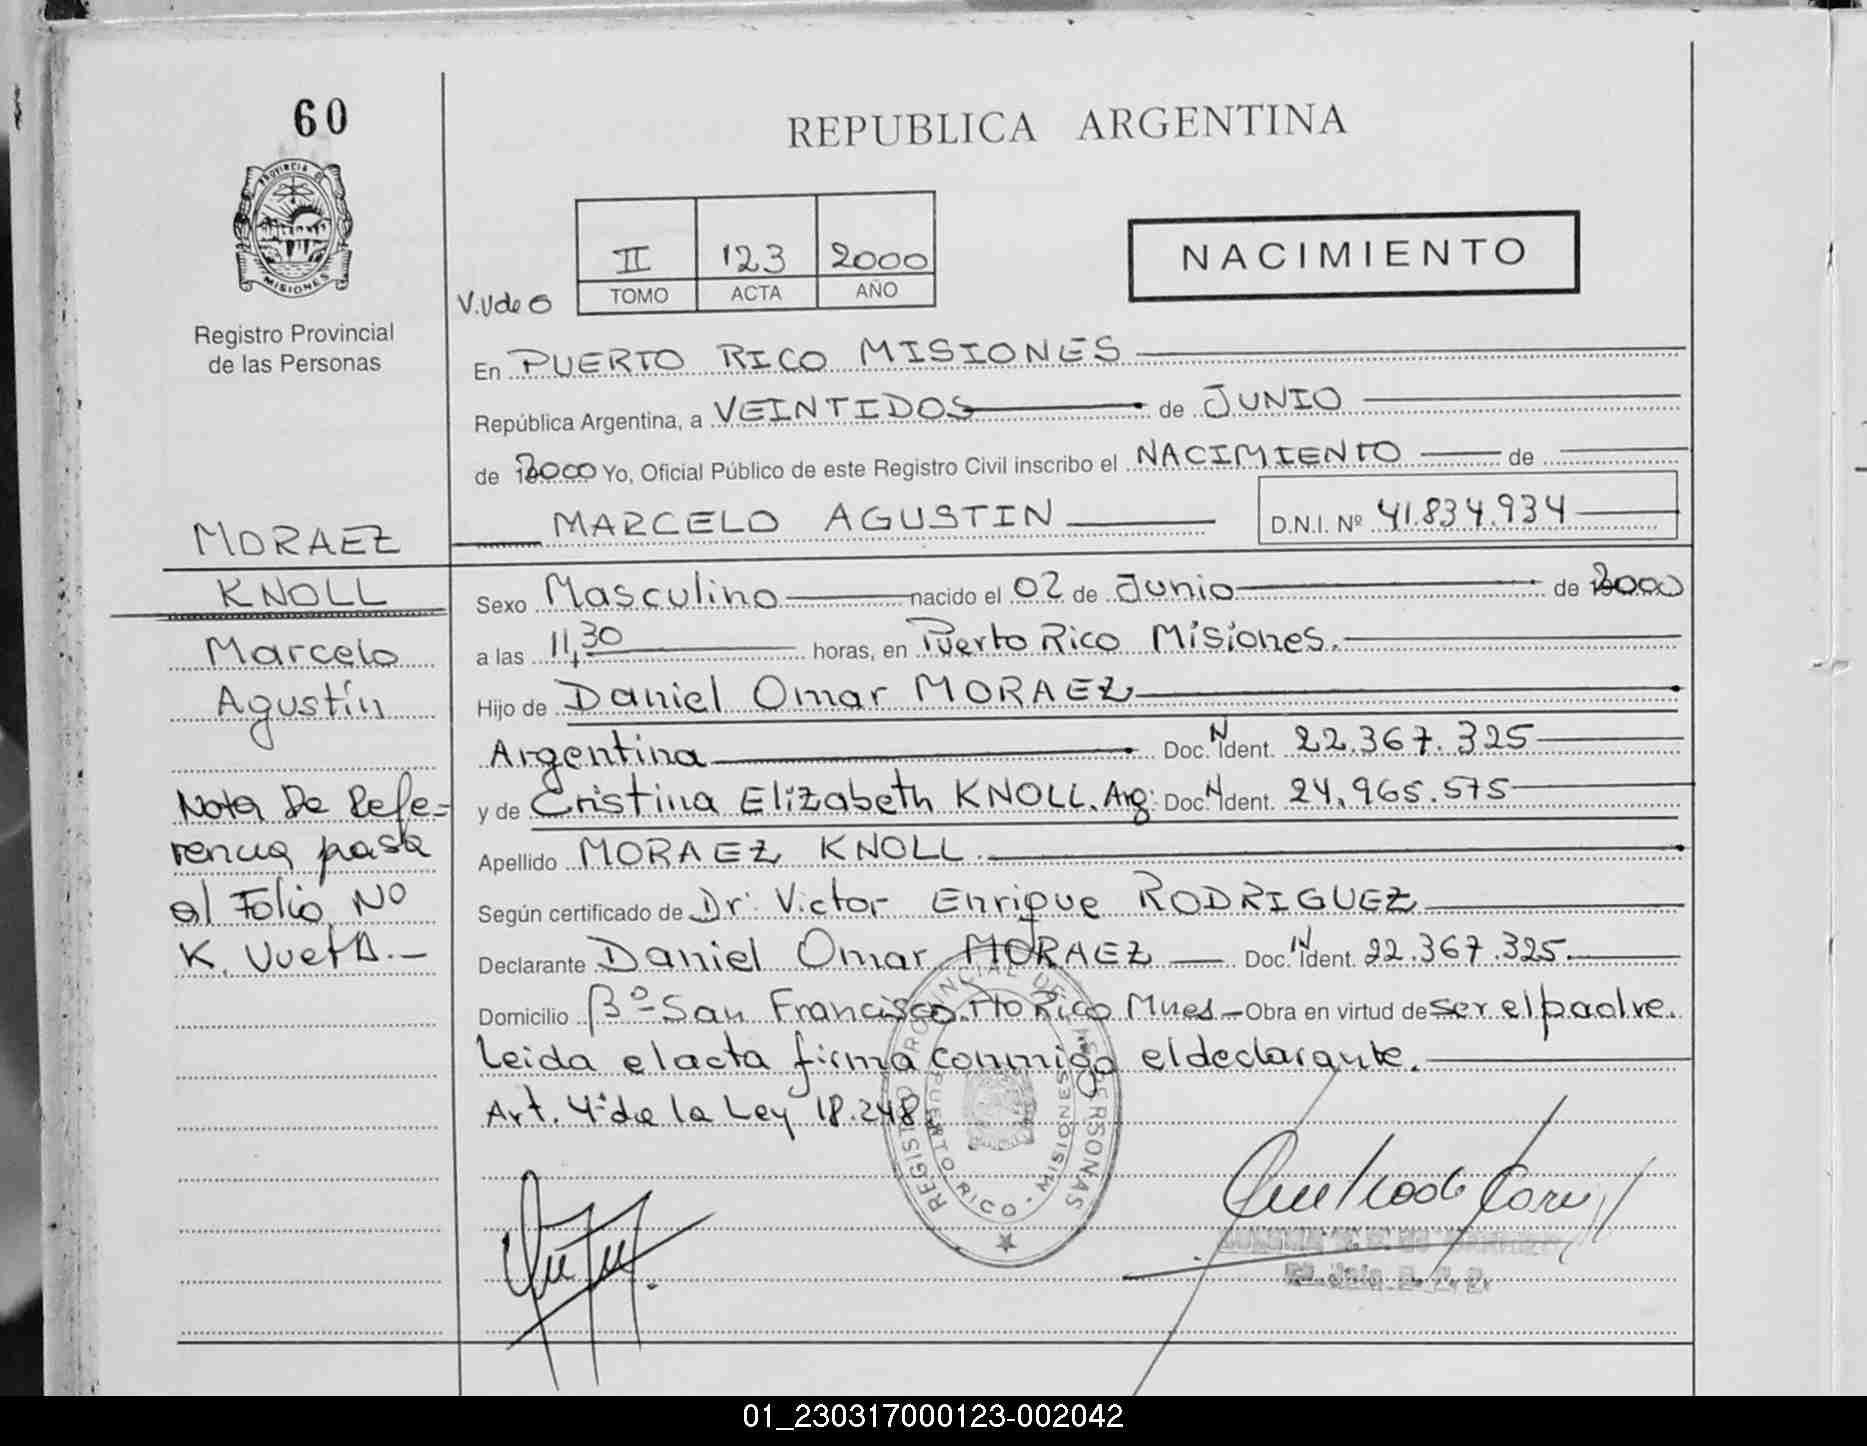 60
PROVINCIA DE
MISIONES
Registro Provincial
de las Personas
REPUBLICA ARGENTINA
II 123 2000
TOMO ACTA AÑO
V.Vde O
NACIMIENTO
En PUERTO RICO MISIONES
República Argentina, a VEINTIDOS de JUNIO
de 2000 Yo, Oficial Público de este Registro Civil inscribo el NACIMIENTO de
MARCELO AGUSTIN D.N.I. Nº 41.834.934
MORAEZ
KNOLL
Marcelo
Agustín
Nota De Refe=
rencia pasa
al Folio Nº
K. Vuelta.-
Sexo Masculino nacido el 02 de Junio de 2000
a las 11,30 horas, en Puerto Rico Misiones.
Hijo de Daniel Omar MORAEZ
Argentina Doc. N Ident. 22.367.325
y de Cristina Elizabeth KNOLL. Arg: Doc. N Ident. 24.965.575
Apellido MORAEZ KNOLL.
Según certificado de Dr. Victor Enrique RODRIGUEZ
Declarante Daniel Omar MORAEZ Doc. N Ident. 22.367.325.
Domicilio Bº San Francisco. Pto Rico Mnes - Obra en virtud de ser el padre.
Leida el acta firma conmigo el declarante.
Art. 4º de la Ley 18.248
REGISTRO PROVINCIAL DE LAS PERSONAS
PUERTO RICO - MISIONES
01_230317000123-002042